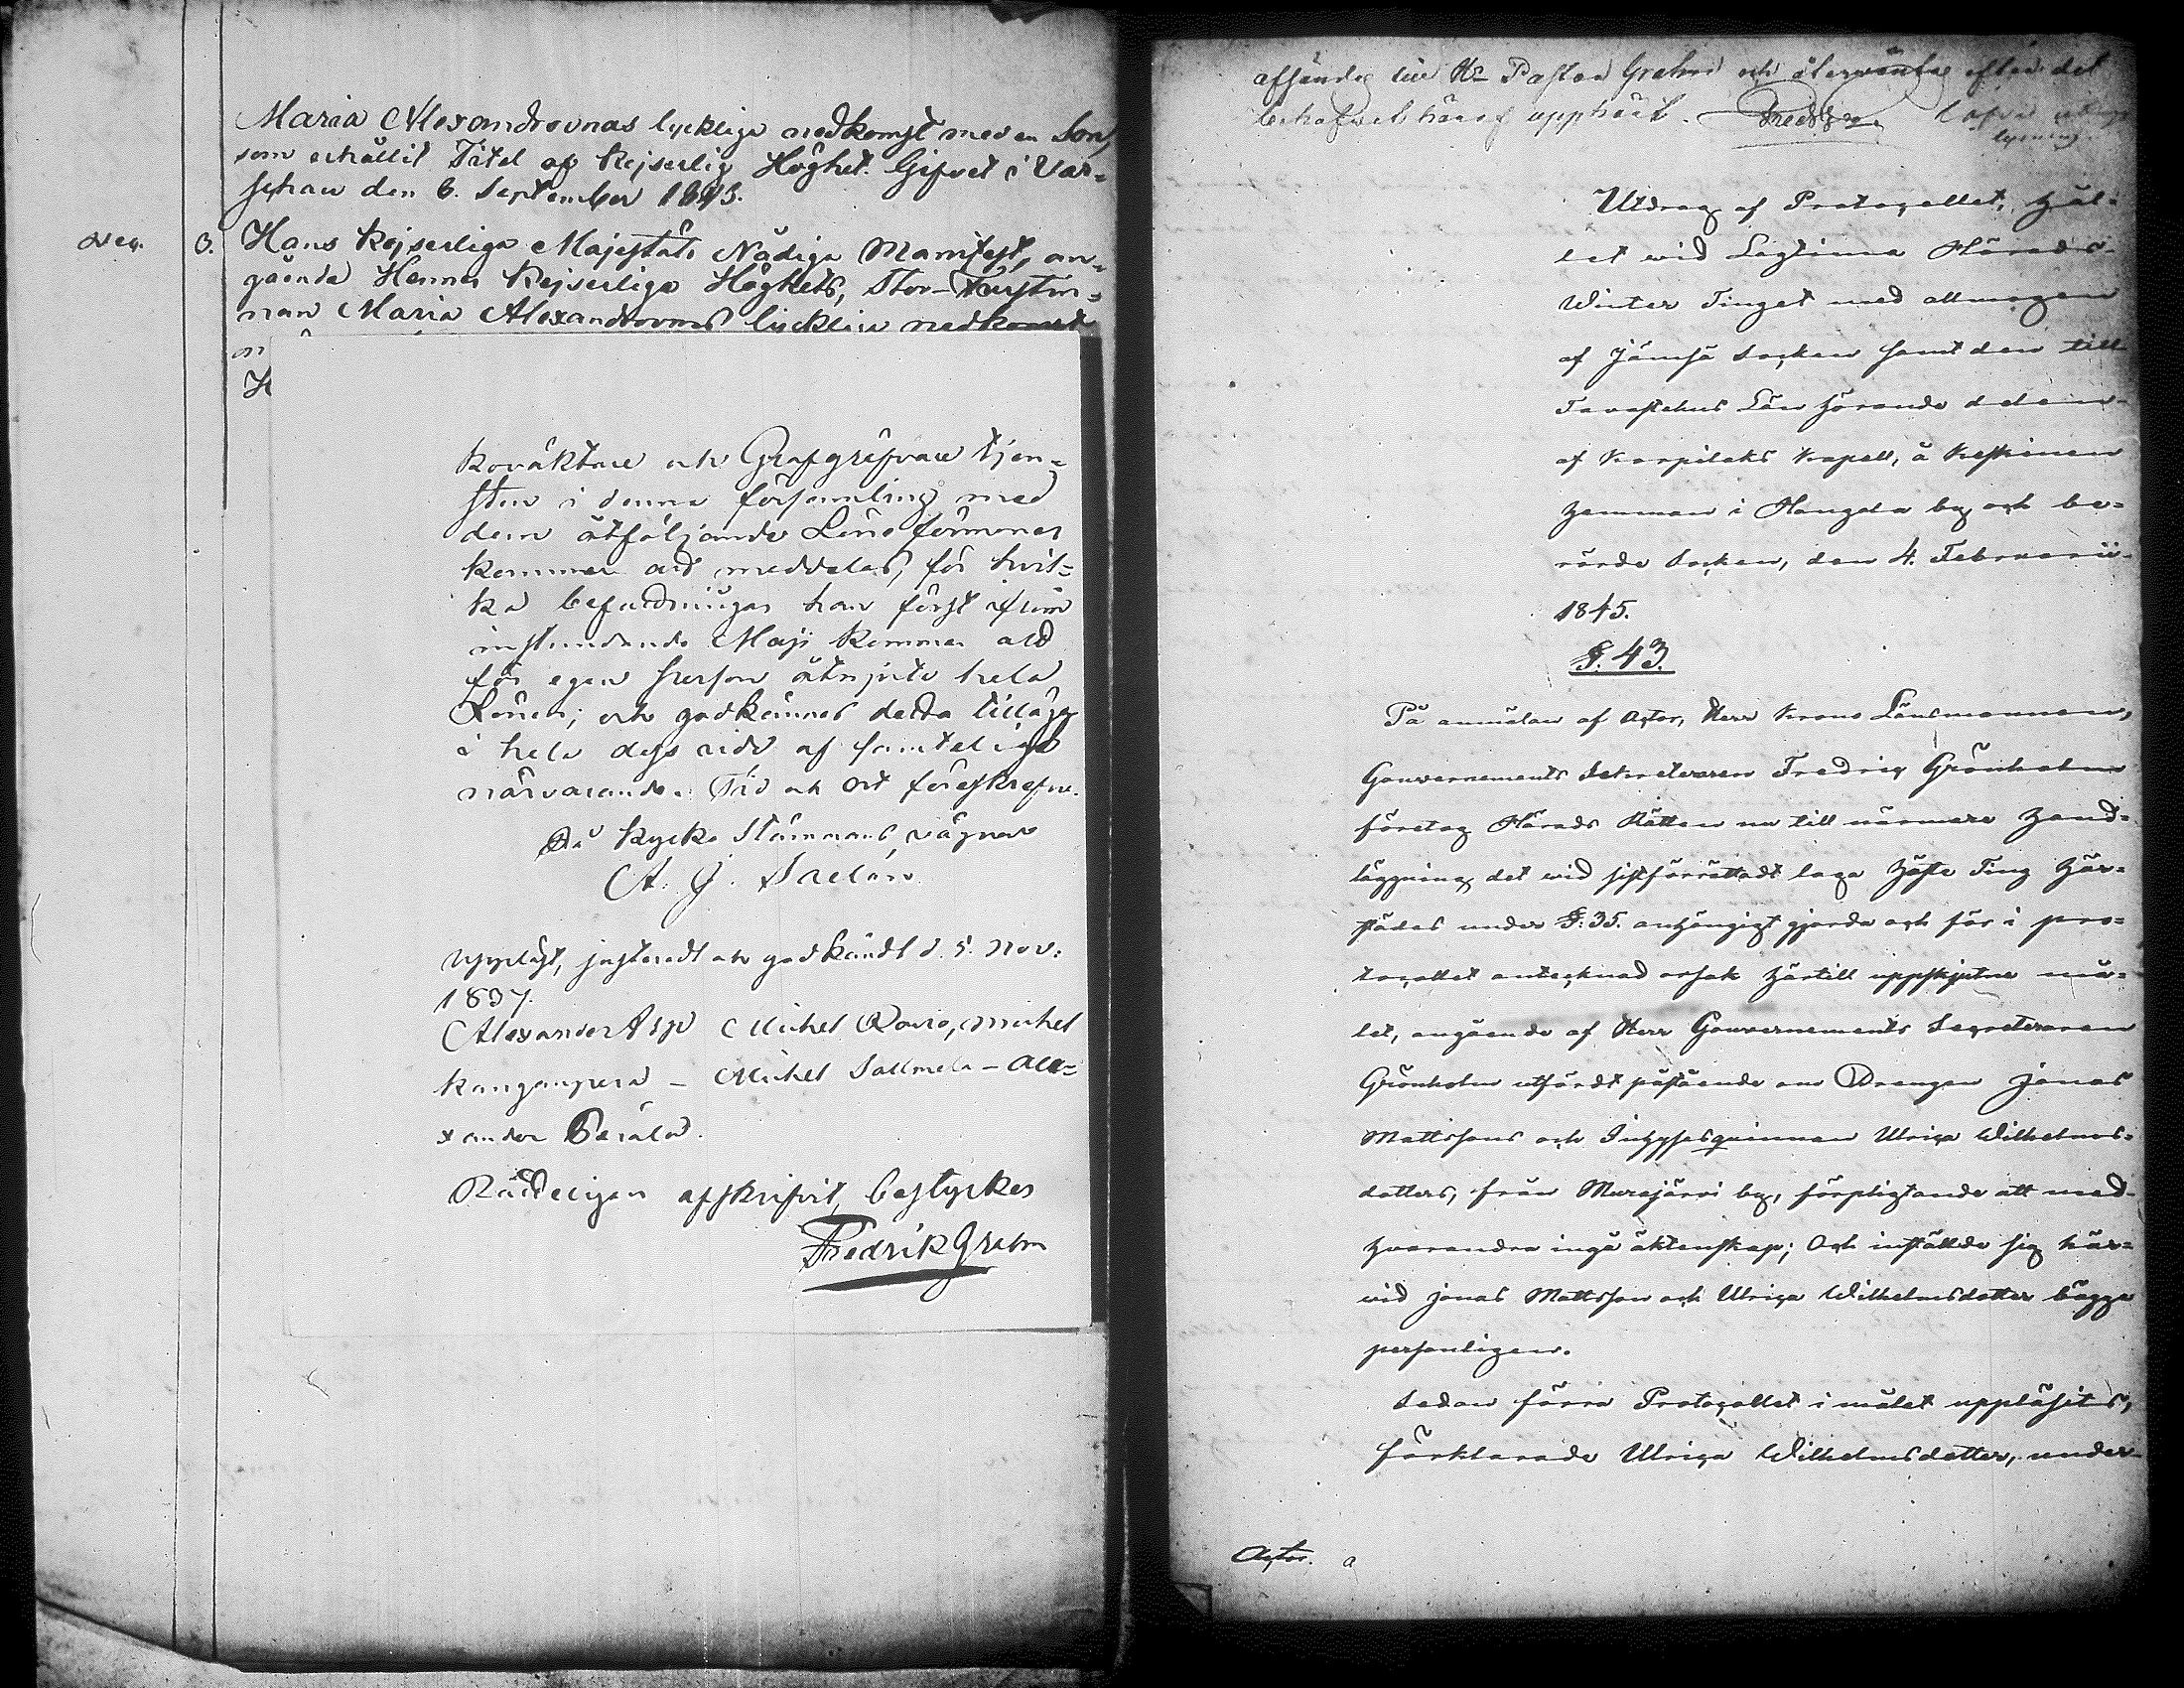 Maria Alexandrovnas lyckliga nedkomst med en Son,
som erhållit Titel af Kejserlig Höghet. Gifvet i War-
schau den 6. September 1843.
O. Hans Kejserliga Majestäts Nådiga Manifest, an-
gående Hennes Kejserliga Höghets, Stor-Furstin-
nan Maria Alexandrovnas lyckliga nedkomst
kovaktare och Grafgräfvare tjen-
sten i denna församling med
dem åtföljande Löneförmoner
kommer att meddelas, för hvil-
ka befattningar han först ifrån
instundande Maji kommer att
för egen person åtnjuta hela
Lönen; och godkännes detta tillägg
i hela dess vidd af samtelige
närvarande. Tid och Ort föreskrefne.
På Kyrko Stämmans vägnar
A. J.
Upplyst, justeradt och godkändt d. 5. Nov:
1837.
Alexander Asp Michel Rowio, Michel
Kangaspera - Michel Sallmela - Ale-
xander Perälä.
Rätteligen afskrifvit, bestyrker
Fredrik Grahn
afsändes till Hr Pastor Grahn och återväntas efter det
behofvet häraf upphört.
Utdrag af Protocollet, hål-
let wid Lagtima Härads-
Winter Tinget med allmogen
af Jämsä Socken samt den till
Tavastehus Län hörande delen
af Korpilaks Kapell, å Keskinen
hemman i Hangela by och be-
rörde Socken, den 4. Februarii
1845.
§. 43.
På anmälan af Actor, Herr Krono Länsmannen,
Gouvernements Sekreteraren Fredric Grönholm
företog Härads Rätten nu till närmare hand-
läggning det wid sistförrättadt laga Höste Ting här-
städes under §. 35. anhängigt gjorda och för i pro-
tocollet antecknad orsak härtill uppskjutne må-
let, angående af Herr Gouvernements Secreteraren
Grönholm utfördt påstående om Drengen Jonas
Mattssons och Inhysesqvinnan Ulrica Wilhelms-
dotters, från Murajärvi by, förpligtande att med
hvarandra ingå äktenskap; Och inställde sig här-
wid Jonas Mattsson och Ulrica Wilhelmsdotter bägge
personligen.
Sedan förra Protocollet i målet uppläsits,
förklarade Ulrica Wilhelmsdotter, under
Actor. a